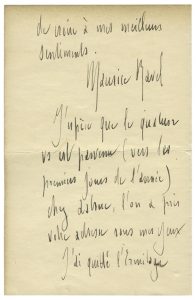 de croire à mes meilleurs
sentiments.
Maurice Ravel
J'espère que le quatuor
vs est parvenu (vers les
premiers jours de l'année)
chez l'on a pris
votre adresse sous mes yeux
J'ai quitté l'Ermitage